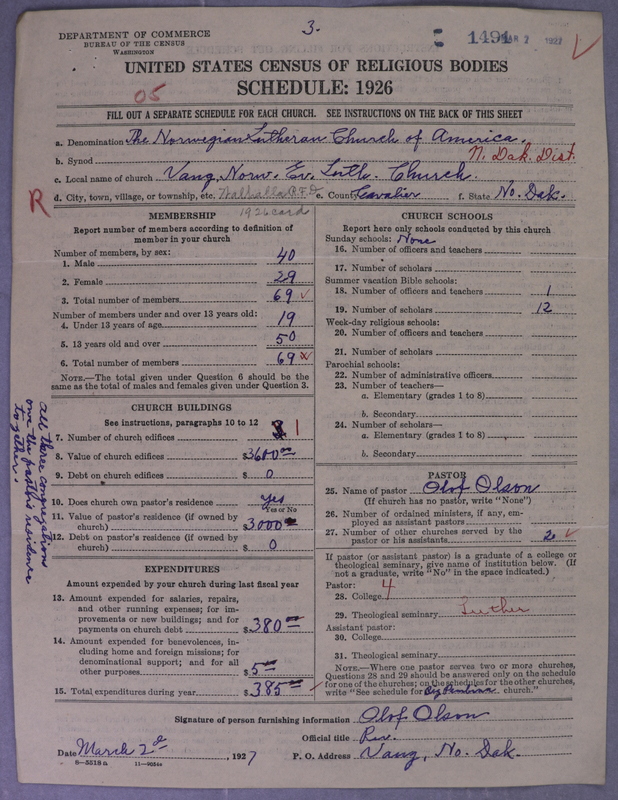 3.
DEPARTMENT OF COMMERCE
BUREAU OF THE CENSUS
WASHINGTON
1491 MAR 7 1927
UNITED STATES CENSUS OF RELIGIOUS BODIES
SCHEDULE: 1926
05
FILL OUT A SEPARATE SCHEDULE FOR EACH CHURCH. SEE INSTRUCTIONS ON THE BACK OF THIS SHEET
a. Denomination The Norwegian Lutheran Church of America.
b. Synod N. Dak. Dist.
c. Local name of church Vang, Norw. Ev. Luth. Church.
d. City, town, village, or township, etc. Walhalla R.F.D e. County Cavalier f. State No. Dak.
R
1926 card
MEMBERSHIP
Report number of members according to definition of member in your church
Number of members, by sex:
1. Male 40
2. Female 29
3. Total number of members 69
Number of members under and over 13 years old:
4. Under 13 years of age 19
5. 13 years old and over 50
6. Total number of members 69
NOTE.—The total given under Question 6 should be the same as the total of males and females given under Question 3.
CHURCH BUILDINGS
See instructions, paragraphs 10 to 12
7. Number of church edifices 1
8. Value of church edifices $3600.00
9. Debt on church edifices $ 0
10. Does church own pastor's residence yes
Yes or No
11. Value of pastor's residence (if owned by church) $3000
12. Debt on pastor's residence (if owned by church) $ 0
All three congregations own the parth's residence together.
EXPENDITURES
Amount expended by your church during last fiscal year
13. Amount expended for salaries, repairs, and other running expenses; for improvements or new buildings; and for payments on church debt $380.00
14. Amount expended for benevolences, including home and foreign missions; for denominational support; and for all other purposes $5.00
15. Total expenditures during year $385.00
CHURCH SCHOOLS
Report here only schools conducted by this church
Sunday schools: None
16. Number of officers and teachers
17. Number of scholars
Summer vacation Bible schools:
18. Number of officers and teachers 1
19. Number of scholars 12
Week-day religious schools:
20. Number of officers and teachers
21. Number of scholars
Parochial schools:
22. Number of administrative officers
23. Number of teachers—
a. Elementary (grades 1 to 8)
b. Secondary
24. Number of scholars—
a. Elementary (grades 1 to 8)
b. Secondary
PASTOR
25. Name of pastor Olof Olson
(If church has no pastor, write "None")
26. Number of ordained ministers, if any, employed as assistant pastors
27. Number of other churches served by the pastor or his assistants 2
If pastor (or assistant pastor) is a graduate of a college or theological seminary, give name of institution below. (If not a graduate, write "No" in the space indicated.)
Pastor: 4
28. College
29. Theological seminary Luther
Assistant pastor:
30. College
31. Theological seminary
NOTE.—Where one pastor serves two or more churches, Questions 28 and 29 should be answered only on the schedule for one of the churches; on the schedules for the other churches, write "See schedule for Pembina church."
Signature of person furnishing information Olof Olson
Official title Rev.
Date March 2d, 1927 P. O. Address Vang, No. Dak.
8—5518 a 11—9054